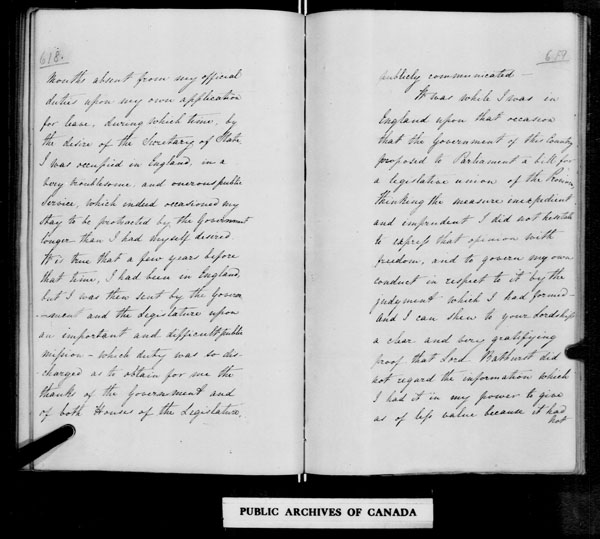 618.
Months absent from my official
duties upon my own application
for leave, during which time, by
the desire of the Secretary of State,
I was occupied in England in a
very troublesome and onerous public
service, which indeed occasioned my
stay to be protracted by the Government
longer than I had myself desired.
It is true that a few years before
that time, I had been in England,
but I was then sent by the Govern
-ment and the Legislature upon
an important and difficult public
mission – which duty was so dis-
-charged as to obtain for me the
thanks of the Government and
of both Houses of the Legislature,
619
publicly communicated –
It was while I was in
England upon that occasion
that the Government of this Country
proposed to Parliament a bill for
a legislative union of the
Thinking the measure inexpedient
and imprudent I did not hesitate
to express that opinion with
freedom, and to govern my own
conduct in respect to it by the
judgment which I had formed –
And I can shew to your Lordship
a clear and very gratifying
proof that Lord Bathurst did
not regard the information which
I had it in my power to give
as of less value because it had
not
PUBLIC ARCHIVES OF CANADA